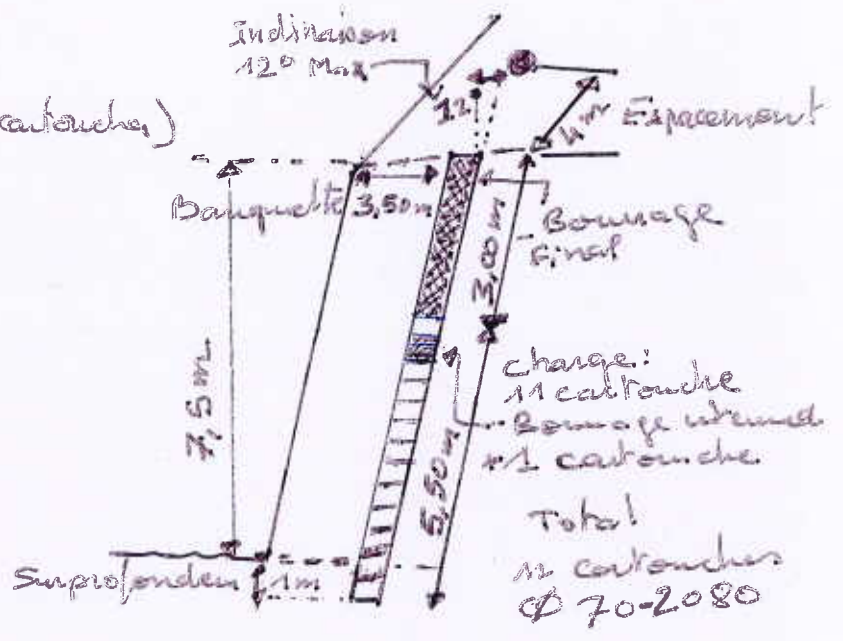 Inclinaison
12° Max
cartouches)
12
4m Espacement
Banquette 3,50m
Bourrage
Final
3,00m
7,5m
Charge:
11 cartouche
Bourrage intermed
+1 cartouche
5,50m
Total
12 cartouches
Ø 70-2080
Surprofondeu 1m